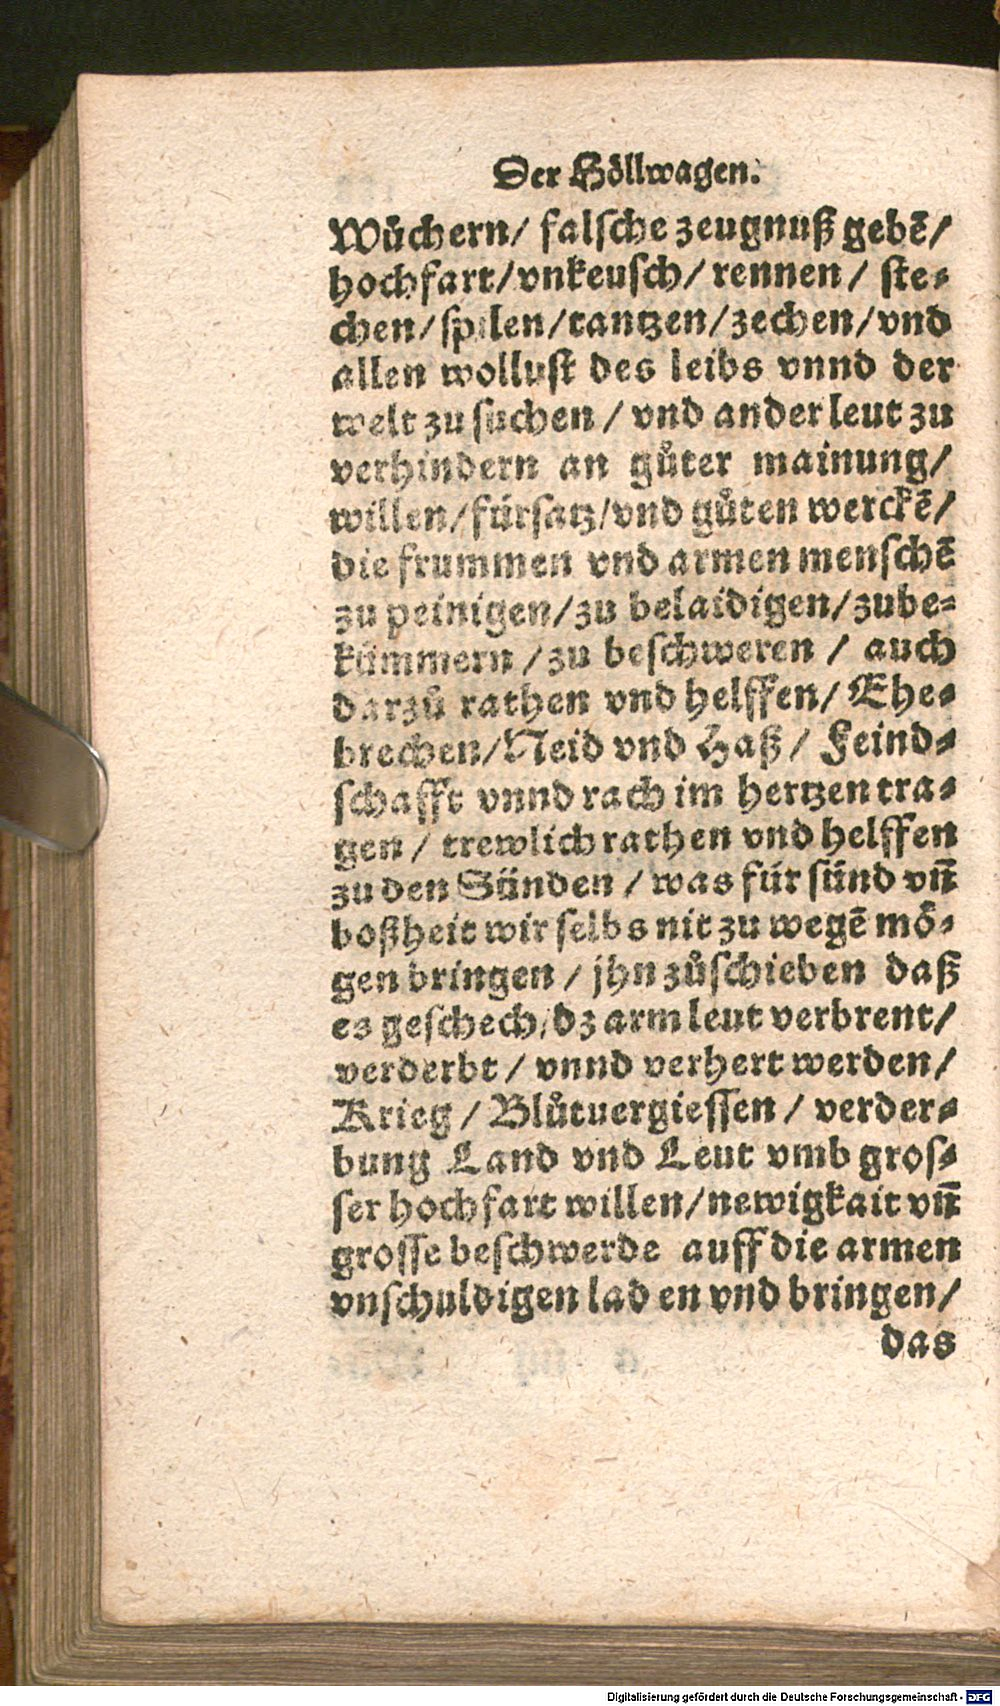 Der Höllwagen.
Wůchern/ falsche zeugnuß gebē/
hochfart/vnkeusch/ rennen/ ste⸗
chen/spilen/tantzen/zechen/vnd
allen wollust des leibs vnnd der
welt zu suchen / vnd ander leut zu
verhindern an gůter mainung/
willen/fürsatz/vnd gůten werckē/
die frummen vnd armen menschē
zu peinigen/zu belaidigen/zube⸗
kümmern /zu beschweren / auch
darzů rathen vnd helffen/ Ehe⸗
brechen/Neid vnd Haß/ Feind⸗
schafft vnnd rach im hertzen tra⸗
gen / trewlich rathen vnd helffen
zu den Sünden / was für sünd vn̄
boßheit wir selbs nit zu wegē mö⸗
gen bringen / jhn zůschieben daß
es geschech/dz arm leut verbrent/
verderbt / vnnd verhert werden/
Krieg / Blůtuergiessen / verder⸗
bung Land vnd Leut vmb gros⸗
ser hochfart willen/newigkait vn̄
grosse beschwerde auff die armen
vnschuldigen lad en vnd bringen/
das
Digitalisierung gefördert durch die Deutsche Forschungsgemeinschaft - DFG